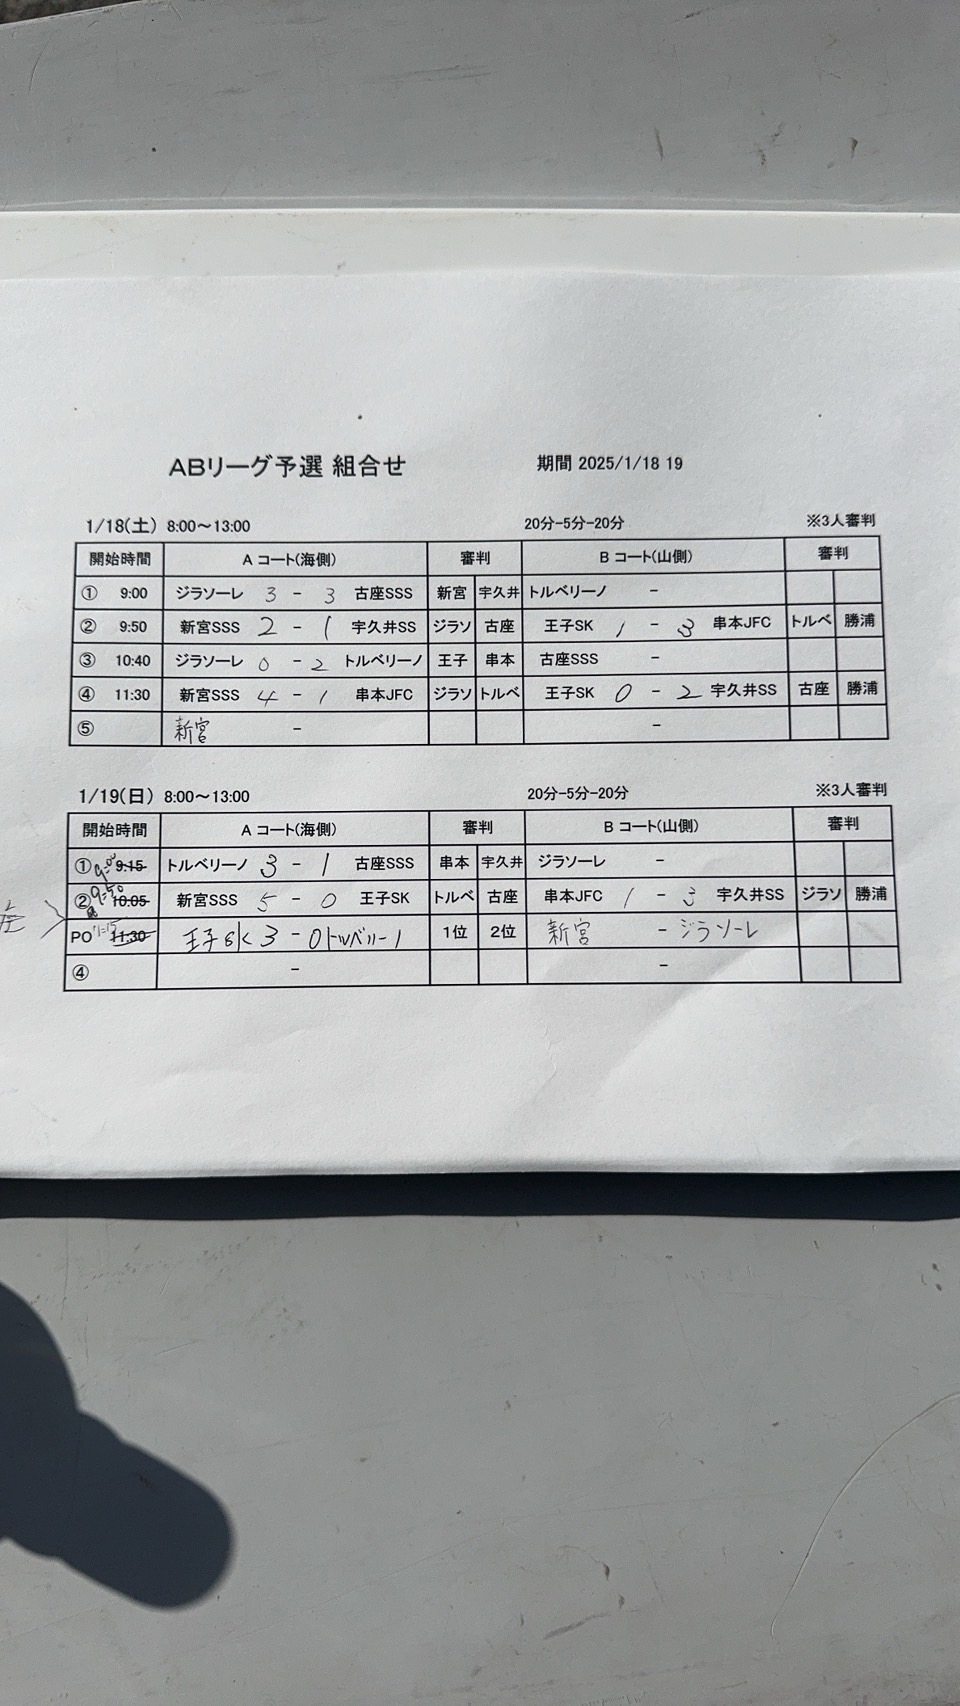 ABリーグ予選 組合せ 期間 2025/1/18 19
1/18(土) 8:00～13:00 20分-5分-20分 ※3人審判
開始時間 A コート(海側) 審判 B コート(山側) 審判
① 9:00 ジラソーレ 3 - 3 古座SSS 新宮 宇久井 トルベリーノ -
② 9:50 新宮SSS 2 - 1 宇久井SS ジラソ 古座 王子SK 1 - 3 串本JFC トルベ 勝浦
③ 10:40 ジラソーレ 0 - 2 トルベリーノ 王子 串本 古座SSS -
④ 11:30 新宮SSS 4 - 1 串本JFC ジラソ トルベ 王子SK 0 - 2 宇久井SS 古座 勝浦
⑤ 新宮 - -
1/19(日) 8:00～13:00 20分-5分-20分 ※3人審判
開始時間 A コート(海側) 審判 B コート(山側) 審判
① 9:00 9:15 トルベリーノ 3 - 1 古座SSS 串本 宇久井 ジラソーレ -
② 9:50 10:05 新宮SSS 5 - 0 王子SK トルベ 古座 串本JFC 1 - 3 宇久井SS ジラソ 勝浦
PO 11:15 11:30 王子SK 3 - 0 トルベリーノ 1位 2位 新宮 - ジラソーレ
④ - -